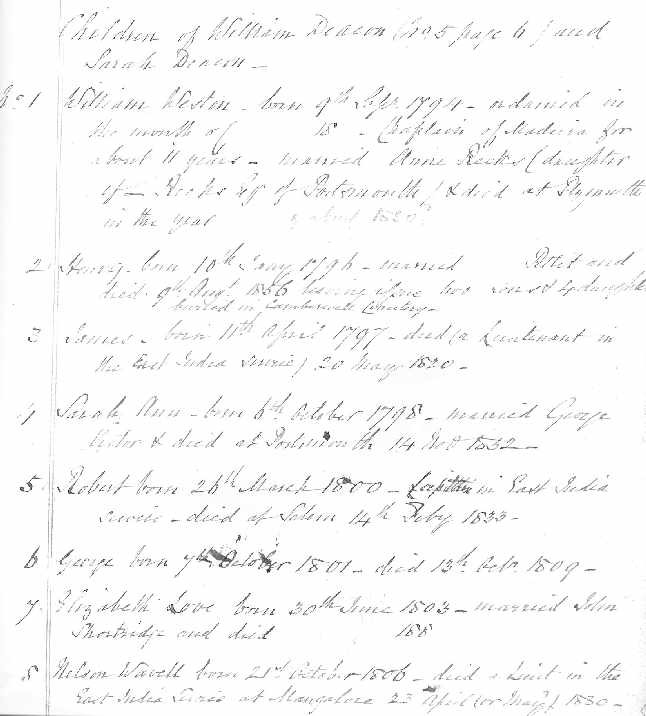 Children of William Deacon (No 5 page 6) and
Sarah Deacon -
No 1 William Weston - born 9th Sep. 1794 - ordained in
the month of 18 - Chaplain of Madeira for
about 11 years - married Anne Reeks (daughter
of - Reeks Esq of Portsmouth) & died at Plymouth
in the year
2 Henry - born 10th Jany 1796 - married and
died 9th Augt. 1856 leaving two sons & 4 daughters
buried in Camberwell Cemetery -
3 James - born 11th April 1797 - died (a Lieutenant in
the East India Service) 20 May 1820 -
4 Sarah Ann - born 6th October 1798 - married George
& died at Portsmouth 14 Nov 1832 -
5 Robert born 26th March 1800 - in East India
Service - died at Salem 14th Feby 1833 -
6 George born 7th October 1801 - died 13th Octr. 1809 -
7. Elizabeth Love born 30th June 1803 - married John
Shortridge and died 188
8 Nelson Wavell born 21st October 1806 - died a Lieut in the
East India Service at Mangalore 23 April (or May) 1830 -